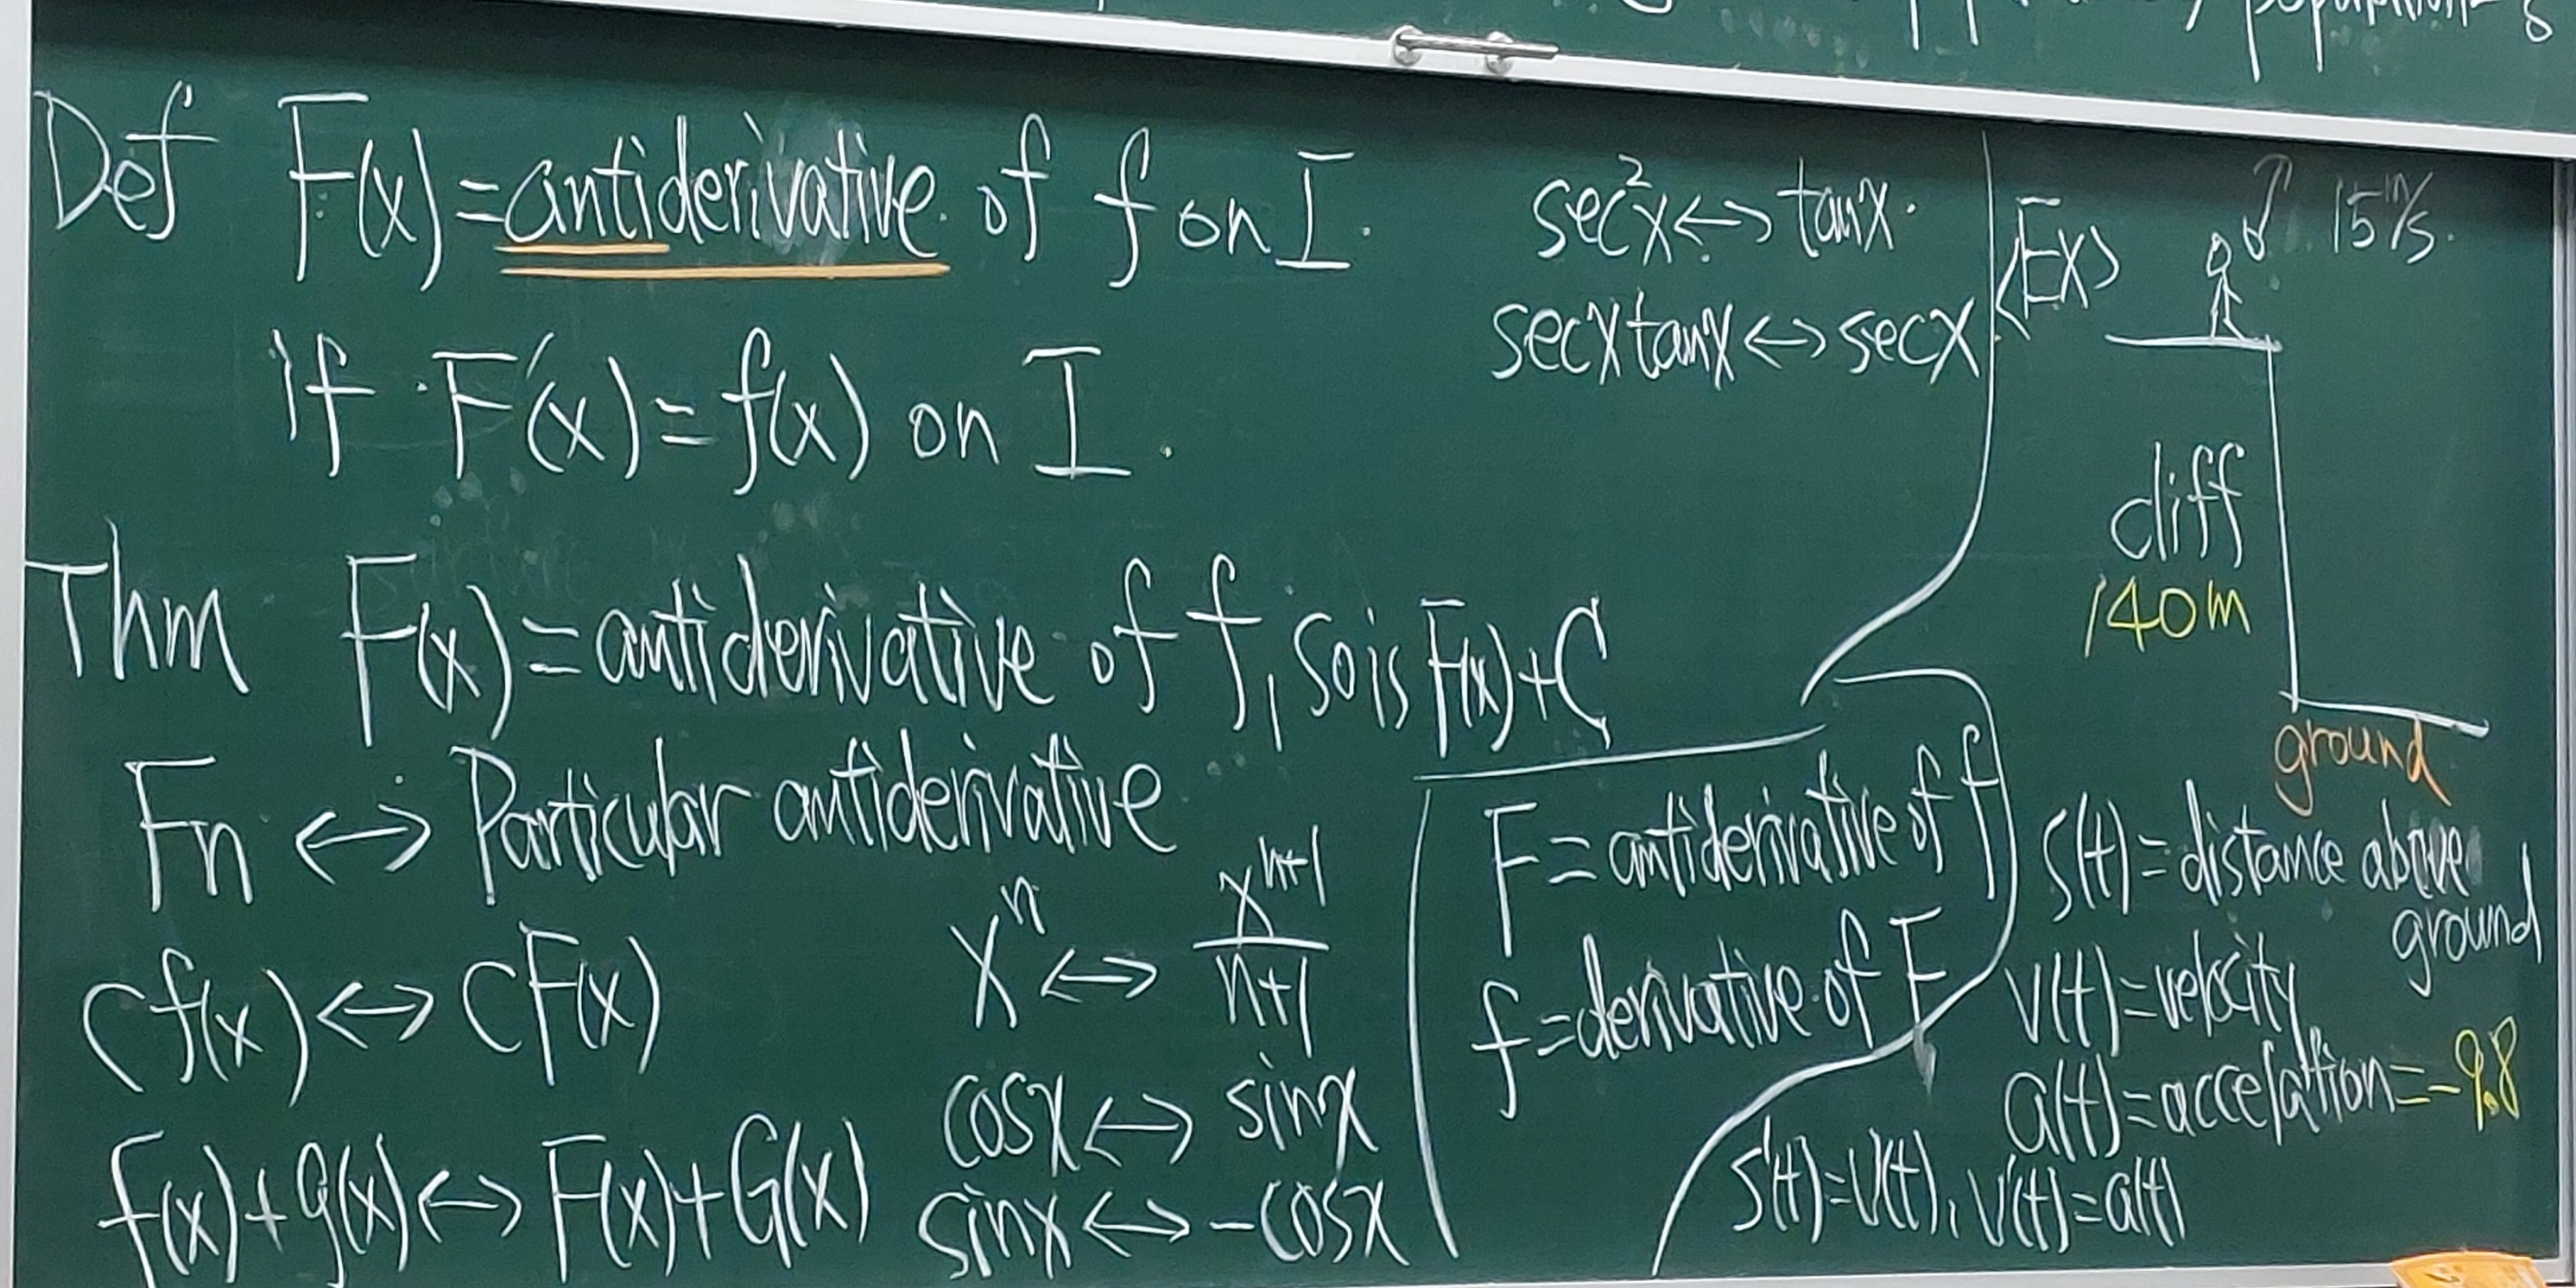 population
Def F(x)=antiderivative of f on I.
if F'(x)=f(x) on I.
Thm F(x)=antiderivative of f, so is F(x)+C
Fn ↔ Particular antiderivative
cf(x)↔cF(x)
f(x)+g(x)↔F(x)+G(x)
xⁿ ↔ xⁿ⁺¹/n+1
cosx↔sinx
sinx↔-cosx
sec²x↔tanx.
secxtanx↔secx
F=antiderivative of f
f=derivative of F
<Ex>
15m/s.
cliff
140m
ground
s(t)=distance above
ground
v(t)=velocity
a(t)=accelation=-9.8
s'(t)=v(t), v'(t)=a(t)